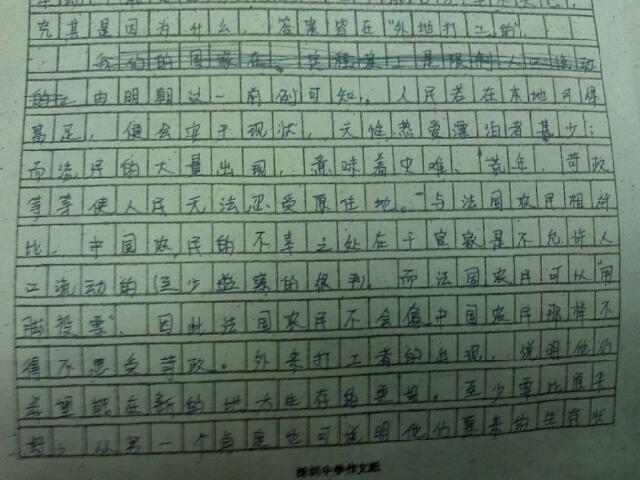 究其是因为什么，答案皆在"外地打工的"
我们的国家在一定程度上是限制人口流动
的。由明朝这一前例可知，人民若在本地可得
富足，便会安于现状，天性热爱漂泊者甚少；
而流民的大量出现，意味着灾难、荒年、苛政
等等使人民无法忍受原住地。与法国农民相对
比，中国农民的不幸之处在于官家是不允许人
口流动的
而法国农民可以"用
脚投票"，因此法国农民不会像中国农民那样不
得不忍受苛政。外来打工者的出现，说明他们
希望能在新的地方生存得更好。至少要比原来
好，从另一个角度也可说明他们原来的生存状
深圳中学作文纸